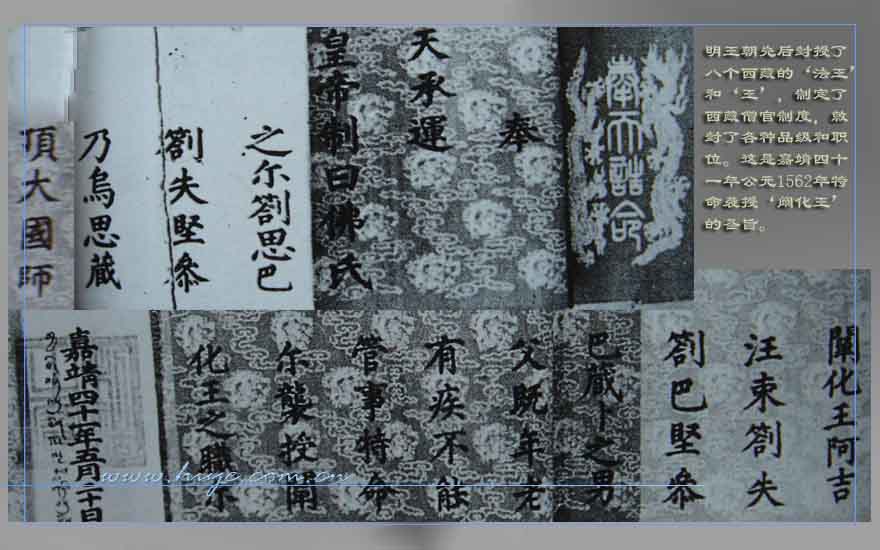 明王朝先后封授了
八个西藏的‘法王’
和‘王’，制定了
西藏僧官制度，敕
封了各种品级和职
位。这是嘉靖四十
一年公元1562年特
命袭授‘阐化王’
的圣旨。
奉天誥命
奉
天承運
皇帝制曰佛氏
之尓劄思巴
劄失堅參
乃烏思藏
頂大國師
闡化王阿吉
汪束劄失
劄巴堅參
巴藏卜之男
父既年老
有疾不能
管事特命
尓襲授闡
化王之職尓
嘉靖四十一年五月二十日